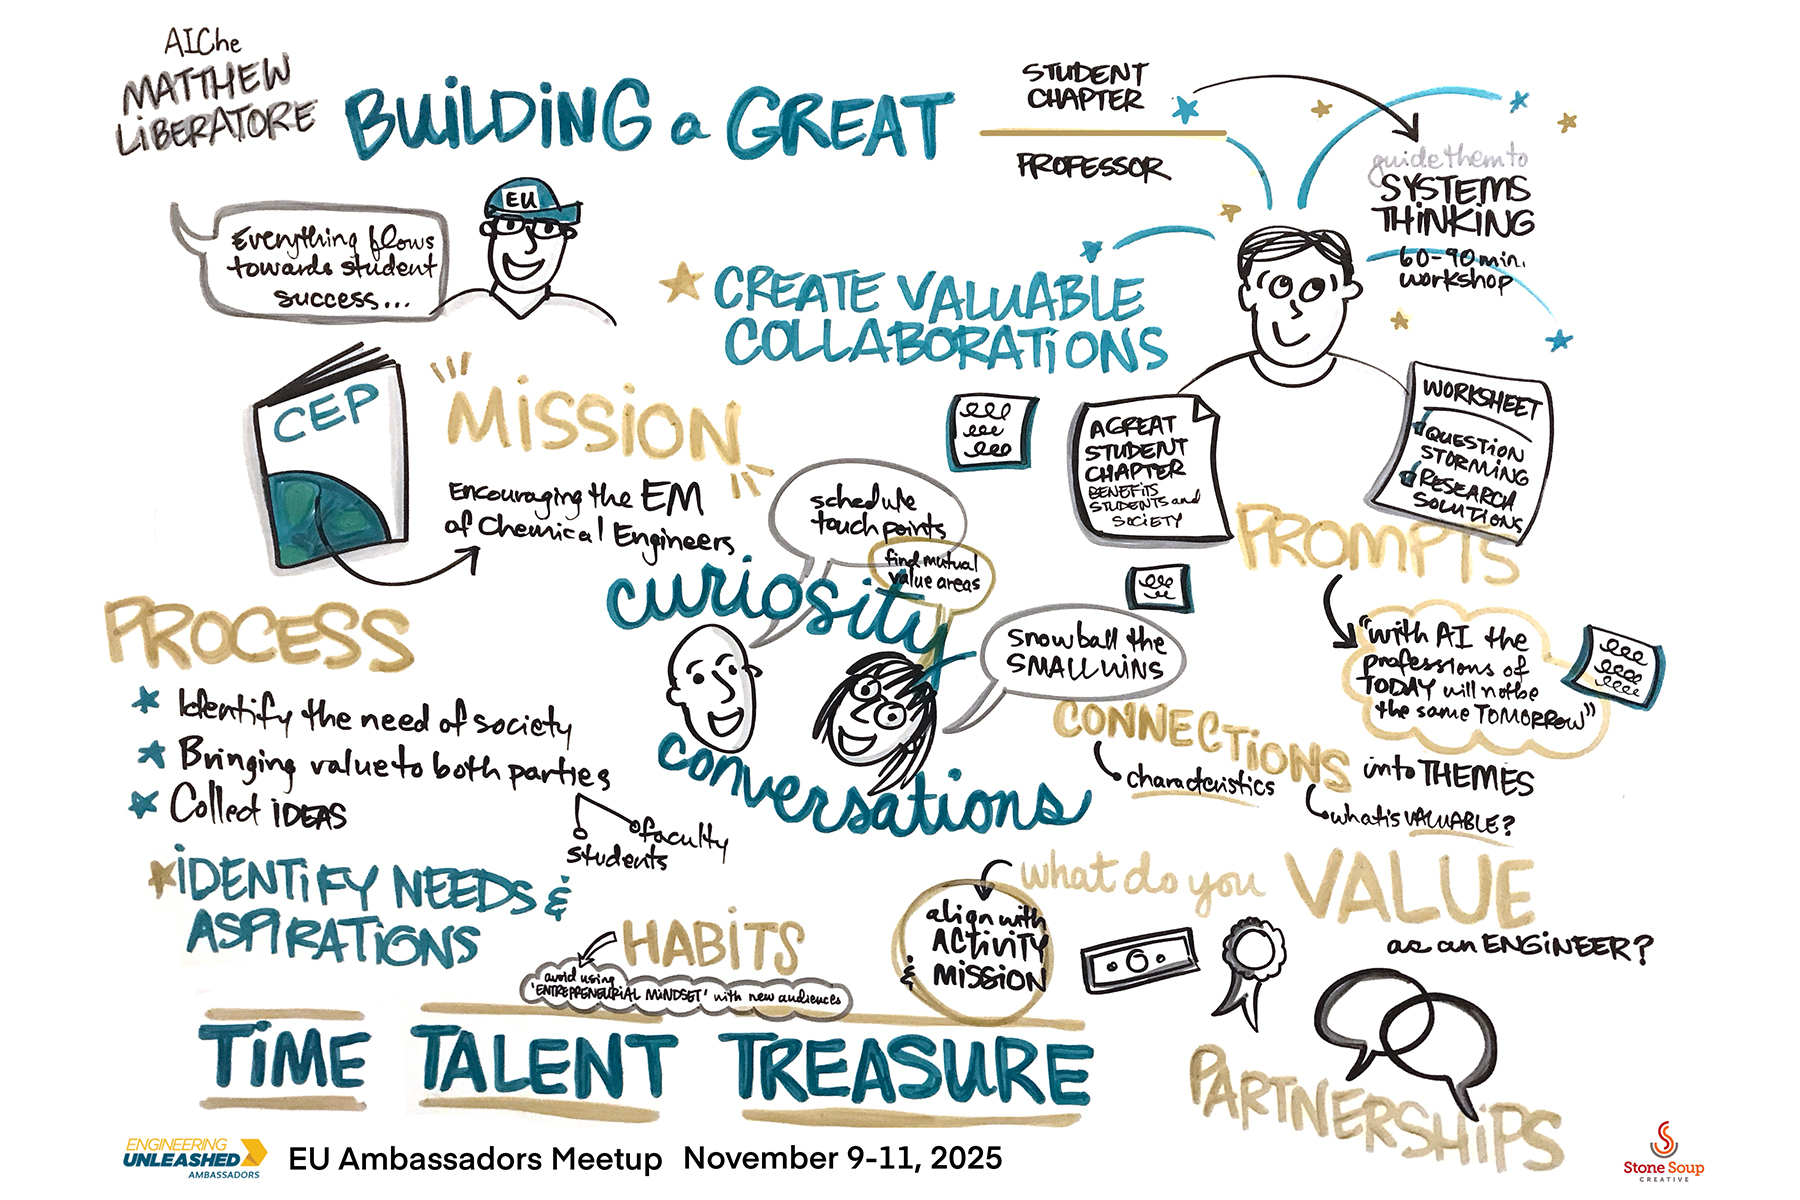 AIChe
MATTHEW
LIBERATORE
BUILDING a GREAT
STUDENT
CHAPTER
PROFESSOR
guide them to
SYSTEMS
THINKING
60-90 min.
workshop
EU
Everything flows
towards student
success...
CREATE VALUABLE
COLLABORATIONS
CEP
MISSION
Encouraging the EM
of Chemical Engineers
A GREAT
STUDENT
CHAPTER
BENEFITS
STUDENTS and
SOCIETY
WORKSHEET
QUESTION
STORMING
RESEARCH
SOLUTIONS
PROMPTS
"with AI the
professions of
TODAY will not be
the same TOMORROW"
schedule
touch points
find mutual
value areas
curiosity
snowball the
SMALL WINS
conversations
PROCESS
Identify the need of society
Bringing value to both parties
Collect IDEAS
students
faculty
CONNECTIONS into THEMES
characteristics
what's VALUABLE?
IDENTIFY NEEDS &
ASPIRATIONS
HABITS
avoid using
'ENTREPRENEURIAL MINDSET' with new audiences
align with
ACTIVITY
& MISSION
what do you VALUE
as an ENGINEER?
TIME TALENT TREASURE
PARTNERSHIPS
ENGINEERING
UNLEASHED
AMBASSADORS
EU Ambassadors Meetup November 9-11, 2025
Stone Soup
CREATIVE